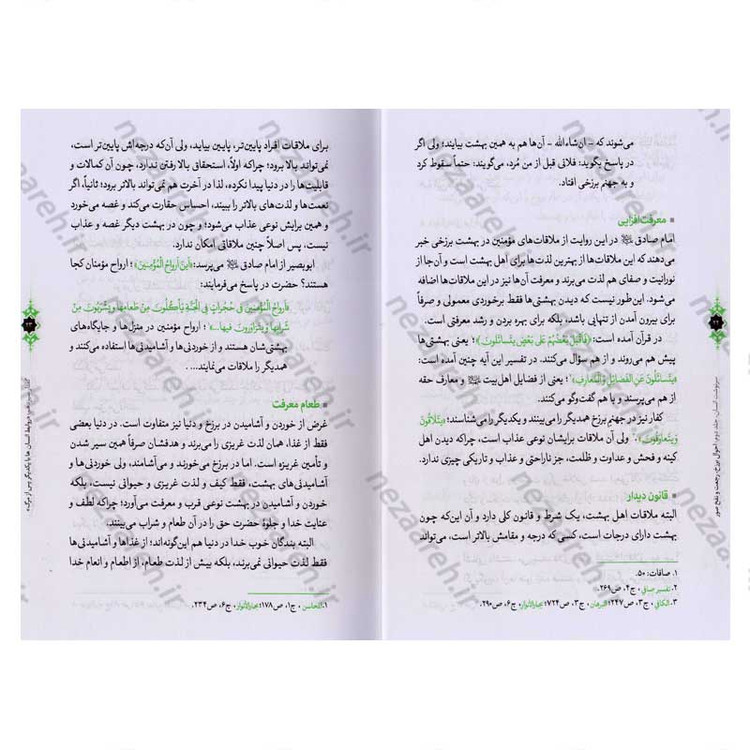 می‌شوند که - ان‌شاءالله - آن‌ها هم به همین بهشت بیایند؛ ولی اگر
در پاسخ بگوید: فلانی قبل از من مُرد، می‌گویند: حتماً سقوط کرد
و به جهنم برزخی افتاد.
معرفت‌افزایی
امام صادق در این روایت از ملاقات‌های مؤمنین در بهشت برزخی خبر
می‌دهند که این ملاقات‌ها از بهترین لذت‌ها برای اهل بهشت است و آن‌جا از
نورانیت و صفای هم لذت می‌برند و معرفت آن‌ها نیز در این ملاقات‌ها اضافه
می‌شود. این‌طور نیست که دیدن بهشتی‌ها فقط برخوردی معمولی و صرفاً
برای بیرون آمدن از تنهایی باشد، بلکه برای بهره بردن و رشد معرفتی است.
در قرآن آمده است: ﴿فَأَقْبَلَ بَعْضُهُمْ عَلَى بَعْضٍ يَتَسَاءَلُونَ﴾؛ یعنی بهشتی‌ها
پیش هم می‌روند و از هم سؤال می‌کنند. در تفسیر این آیه چنین آمده است:
«يَتَسائَلُونَ عَنِ الفَضائِلِ وَ المَعارِفِ»؛ یعنی از فضایل اهل‌بیت و معارف حقه
از هم می‌پرسند و با هم گفت‌وگو می‌کنند.
کفار نیز در جهنم برزخ همدیگر را می‌بینند و یکدیگر را می‌شناسند؛ «يَتَلاقَوْنَ
وَ يَتَعارَفُونَ». ولی آن ملاقات برایشان نوعی عذاب است، چراکه دیدن اهل
کینه و فحش و عداوت و ظلمت، جز ناراحتی و عذاب و تاریکی چیزی ندارد.
قانون دیدار
البته ملاقات اهل بهشت، یک شرط و قانون کلی دارد و آن این‌که چون
بهشت دارای درجات است، کسی که درجه و مقامش بالاتر است، می‌تواند
۱. صافات: ۵۰.
۲. تفسیر صافی، ج۴، ص۲۶۹.
۳. الکافی، ج۳، ص۲۴۷؛ البرهان، ج۳، ص۷۲۴؛ بحارالأنوار، ج۶، ص۲۹۰.
سرنوشت انسان، جلد دوم: احوال برزخ، رجعت و نفخ صور
برای ملاقات افراد پایین‌تر، پایین بیاید، ولی آن‌که درجه‌اش پایین‌تر است،
نمی‌تواند بالا برود؛ چراکه اولاً، استحقاقی بالا رفتن ندارد، چون آن کمالات و
قابلیت‌ها را در دنیا پیدا نکرده، لذا در آخرت هم نمی‌تواند بالاتر برود؛ ثانیاً، اگر
نعمت‌ها و لذت‌های بالاتر را ببیند، احساس حقارت می‌کند و غصه می‌خورد
و همین برایش نوعی عذاب می‌شود؛ و چون در بهشت دیگر غصه و عذاب
نیست، پس اصلاً چنین ملاقاتی امکان ندارد.
ابوبصیر از امام صادق می‌پرسد: «أَيْنَ أَرْوَاحُ الْمُؤْمِنِينَ»؛ ارواح مؤمنان کجا
هستند؟ حضرت در پاسخ می‌فرمایند:
«أَرْوَاحُ الْمُؤْمِنِينَ فِي حُجُرَاتٍ فِي الْجَنَّةِ يَأْكُلُونَ مِنْ طَعَامِهَا وَ يَشْرَبُونَ مِنْ
شَرَابِهَا وَ يَتَزَاوَرُونَ فِيهَا...»؛ ارواح مؤمنین در منزل‌ها و جایگاه‌های
بهشتی‌شان هستند و از خوردنی‌ها و آشامیدنی‌ها استفاده می‌کنند و
همدیگر را ملاقات می‌نمایند... .
طعام معرفت
غرض از خوردن و آشامیدن در برزخ و دنیا نیز متفاوت است. در دنیا بعضی
فقط از غذا، همان لذت غریزی را می‌برند و هدفشان صرفاً همین سیر شدن
و تأمین غریزه است. اما در برزخ می‌خورند و می‌آشامند، ولی خوردنی‌ها و
آشامیدنی‌های بهشت، فقط کیف و لذت غریزی و حیوانی نیست، بلکه
خوردن و آشامیدن در بهشت نوعی قرب و معرفت می‌آورد؛ چراکه لطف و
عنایت خدا و جلوهٔ حضرت حق را در آن طعام و شراب می‌بینند.
البته بندگان خوب خدا در دنیا هم این‌گونه‌اند؛ از غذاها و آشامیدنی‌ها
فقط لذت حیوانی نمی‌برند، بلکه بیش از لذت طعام، از اطعام و انعام خدا
۱. المحاسن، ج۱، ص۱۷۸؛ بحارالأنوار، ج۶، ص۲۳۴.
nezaareh.ir